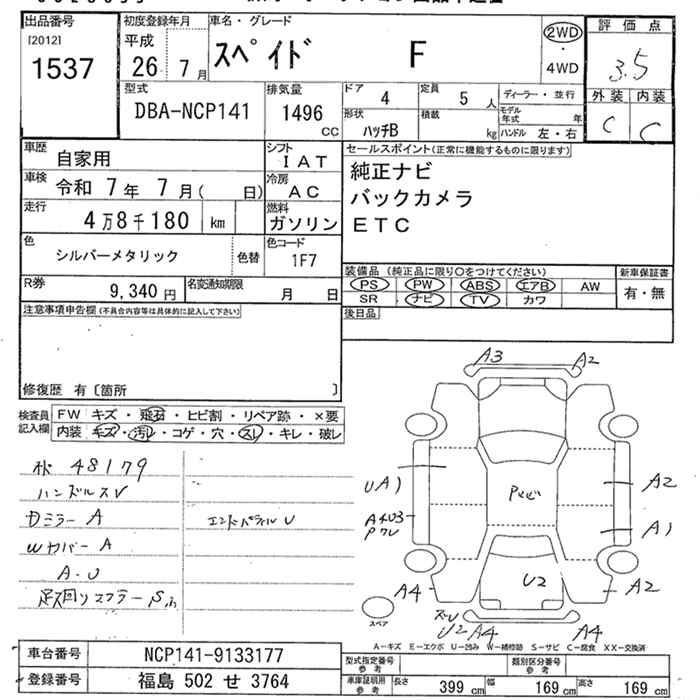 出品番号
[2012]
1537
初度登録年月
平成
26年 7月
車名・グレード
スペイド F
2WD
・
4WD
評価点
3.5
外装 内装
C C
型式
DBA-NCP141
排気量
1496
cc
ドア 4
定員 5人
形状 ハッチB
積載 kg
ディーラー・並行
モデル年式 年
ハンドル 左・右
車歴 自家用
シフト IAT
車検 令和 7年 7月( 日)
冷房 AC
走行 4万8千180 km
燃料 ガソリン
色 シルバーメタリック
色替
色コード 1F7
R券 9,340円
名変通知期限 月 日
セールスポイント(正常に機能するものに限ります)
純正ナビ
バックカメラ
ETC
装備品 (純正品に限り○をつけてください)
PS PW ABS エアB AW
SR ナビ TV カワ
新車保証書
有・無
後日品
注意事項申告欄(不具合内容等は具体的に記入して下さい)
修復歴 有〔箇所 〕
検査員記入欄
FW キズ・飛石・ヒビ割・リペア跡・×要
内装 キズ・汚レ・コゲ・穴・スレ・キレ・破レ
48179
ハンドルスレ
Dミラー A
Wカバー A
A・U
足廻りマフラーSふ
U
A3
A2
UA1
A4U3
A2
A1
A4
U2
A2
スペア
U2 A4
A4
A-キズ E-エクボ U-凹み W-補修跡 S-サビ C-腐食 XX-交換済
車台番号 NCP141-9133177
登録番号 福島 502 せ 3764
型式指定番号参考
類別区分番号参考
車庫証明用参考
長さ 399 cm
幅 169 cm
高さ 169 cm